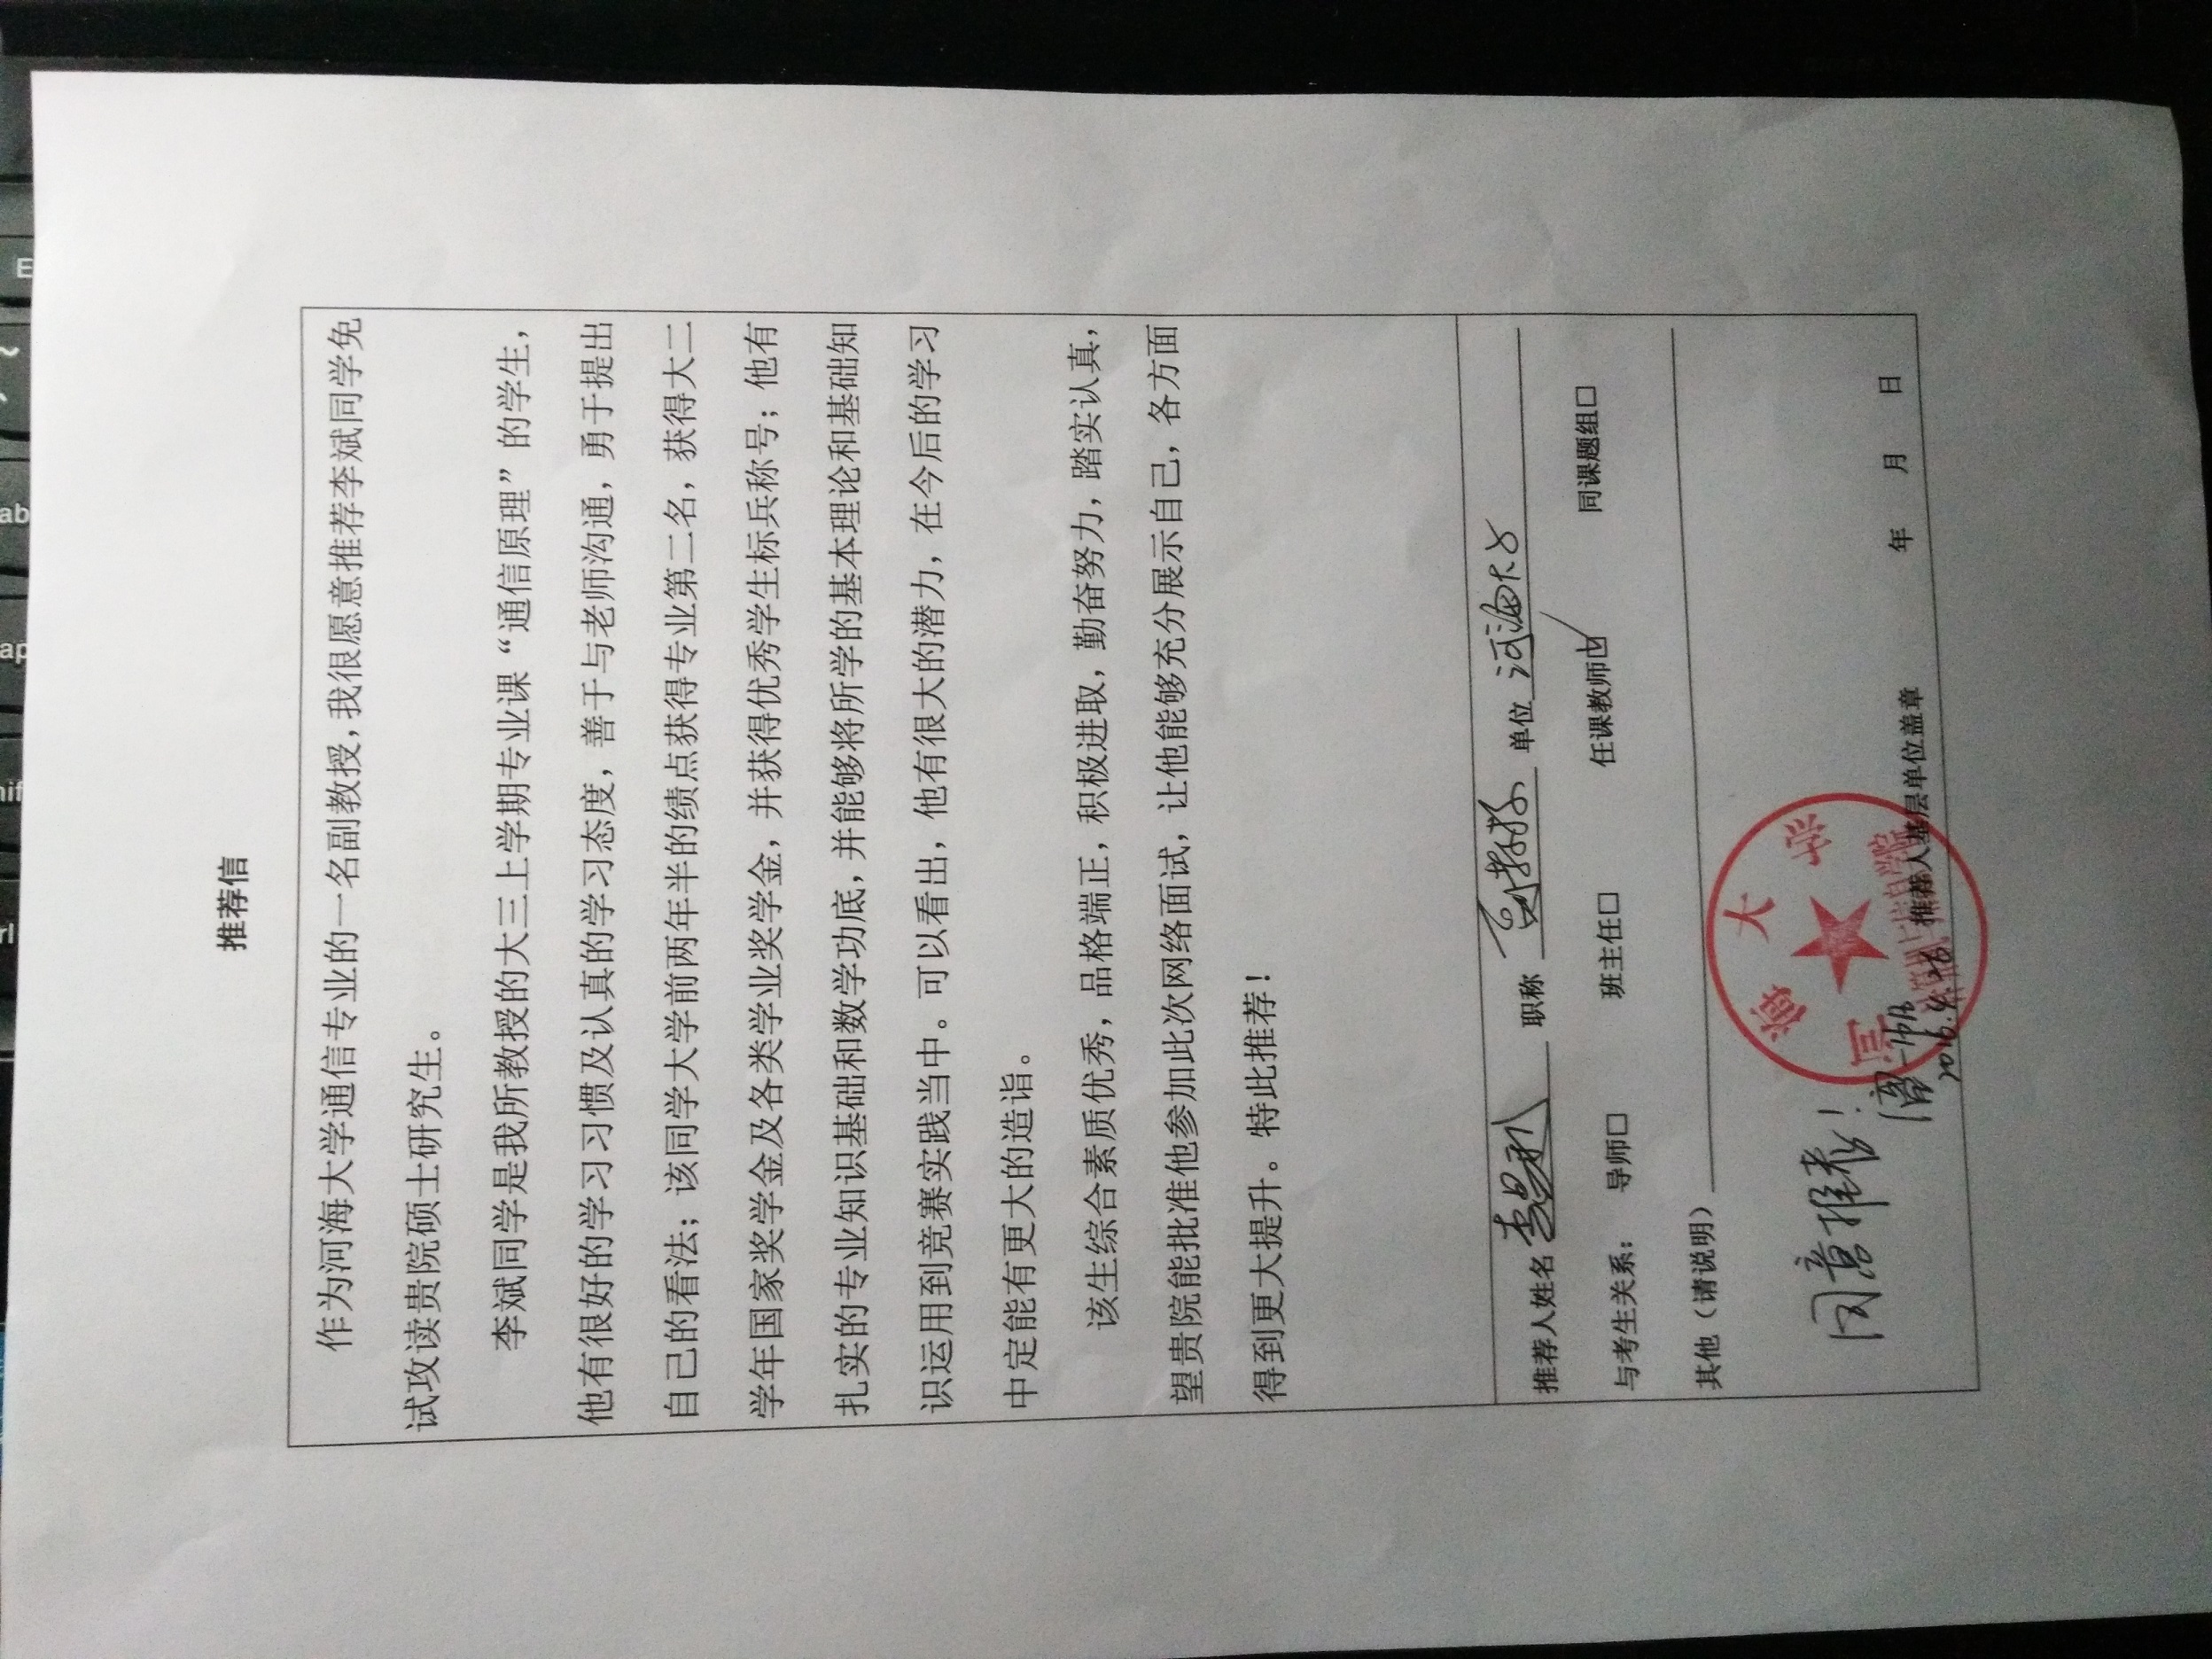 推荐信
作为河海大学通信专业的一名副教授，我很愿意推荐李斌同学免
试攻读贵院硕士研究生。
李斌同学是我所教授的大三上学期专业课“通信原理”的学生，
他有很好的学习习惯及认真的学习态度，善于与老师沟通，勇于提出
自己的看法；该同学大学前两年半的绩点获得专业第二名，获得大二
学年国家奖学金及各类学业奖学金，并获得优秀学生标兵称号；他有
扎实的专业知识基础和数学功底，并能够将所学的基本理论和基础知
识运用到竞赛实践当中。可以看出，他有很大的潜力，在今后的学习
中定能有更大的造诣。
该生综合素质优秀，品格端正，积极进取，勤奋努力，踏实认真，
望贵院能批准他参加此次网络面试，让他能够充分展示自己，各方面
得到更大提升。特此推荐！
推荐人姓名 李昌利 职称 副教授 单位 河海大学
与考生关系： 导师□ 班主任□ 任课教师☑ 同课题组□
其他（请说明）
河海大学
同意推荐！
计算机与信息学院
推荐人基层单位盖章 年 月 日
2016.4.26